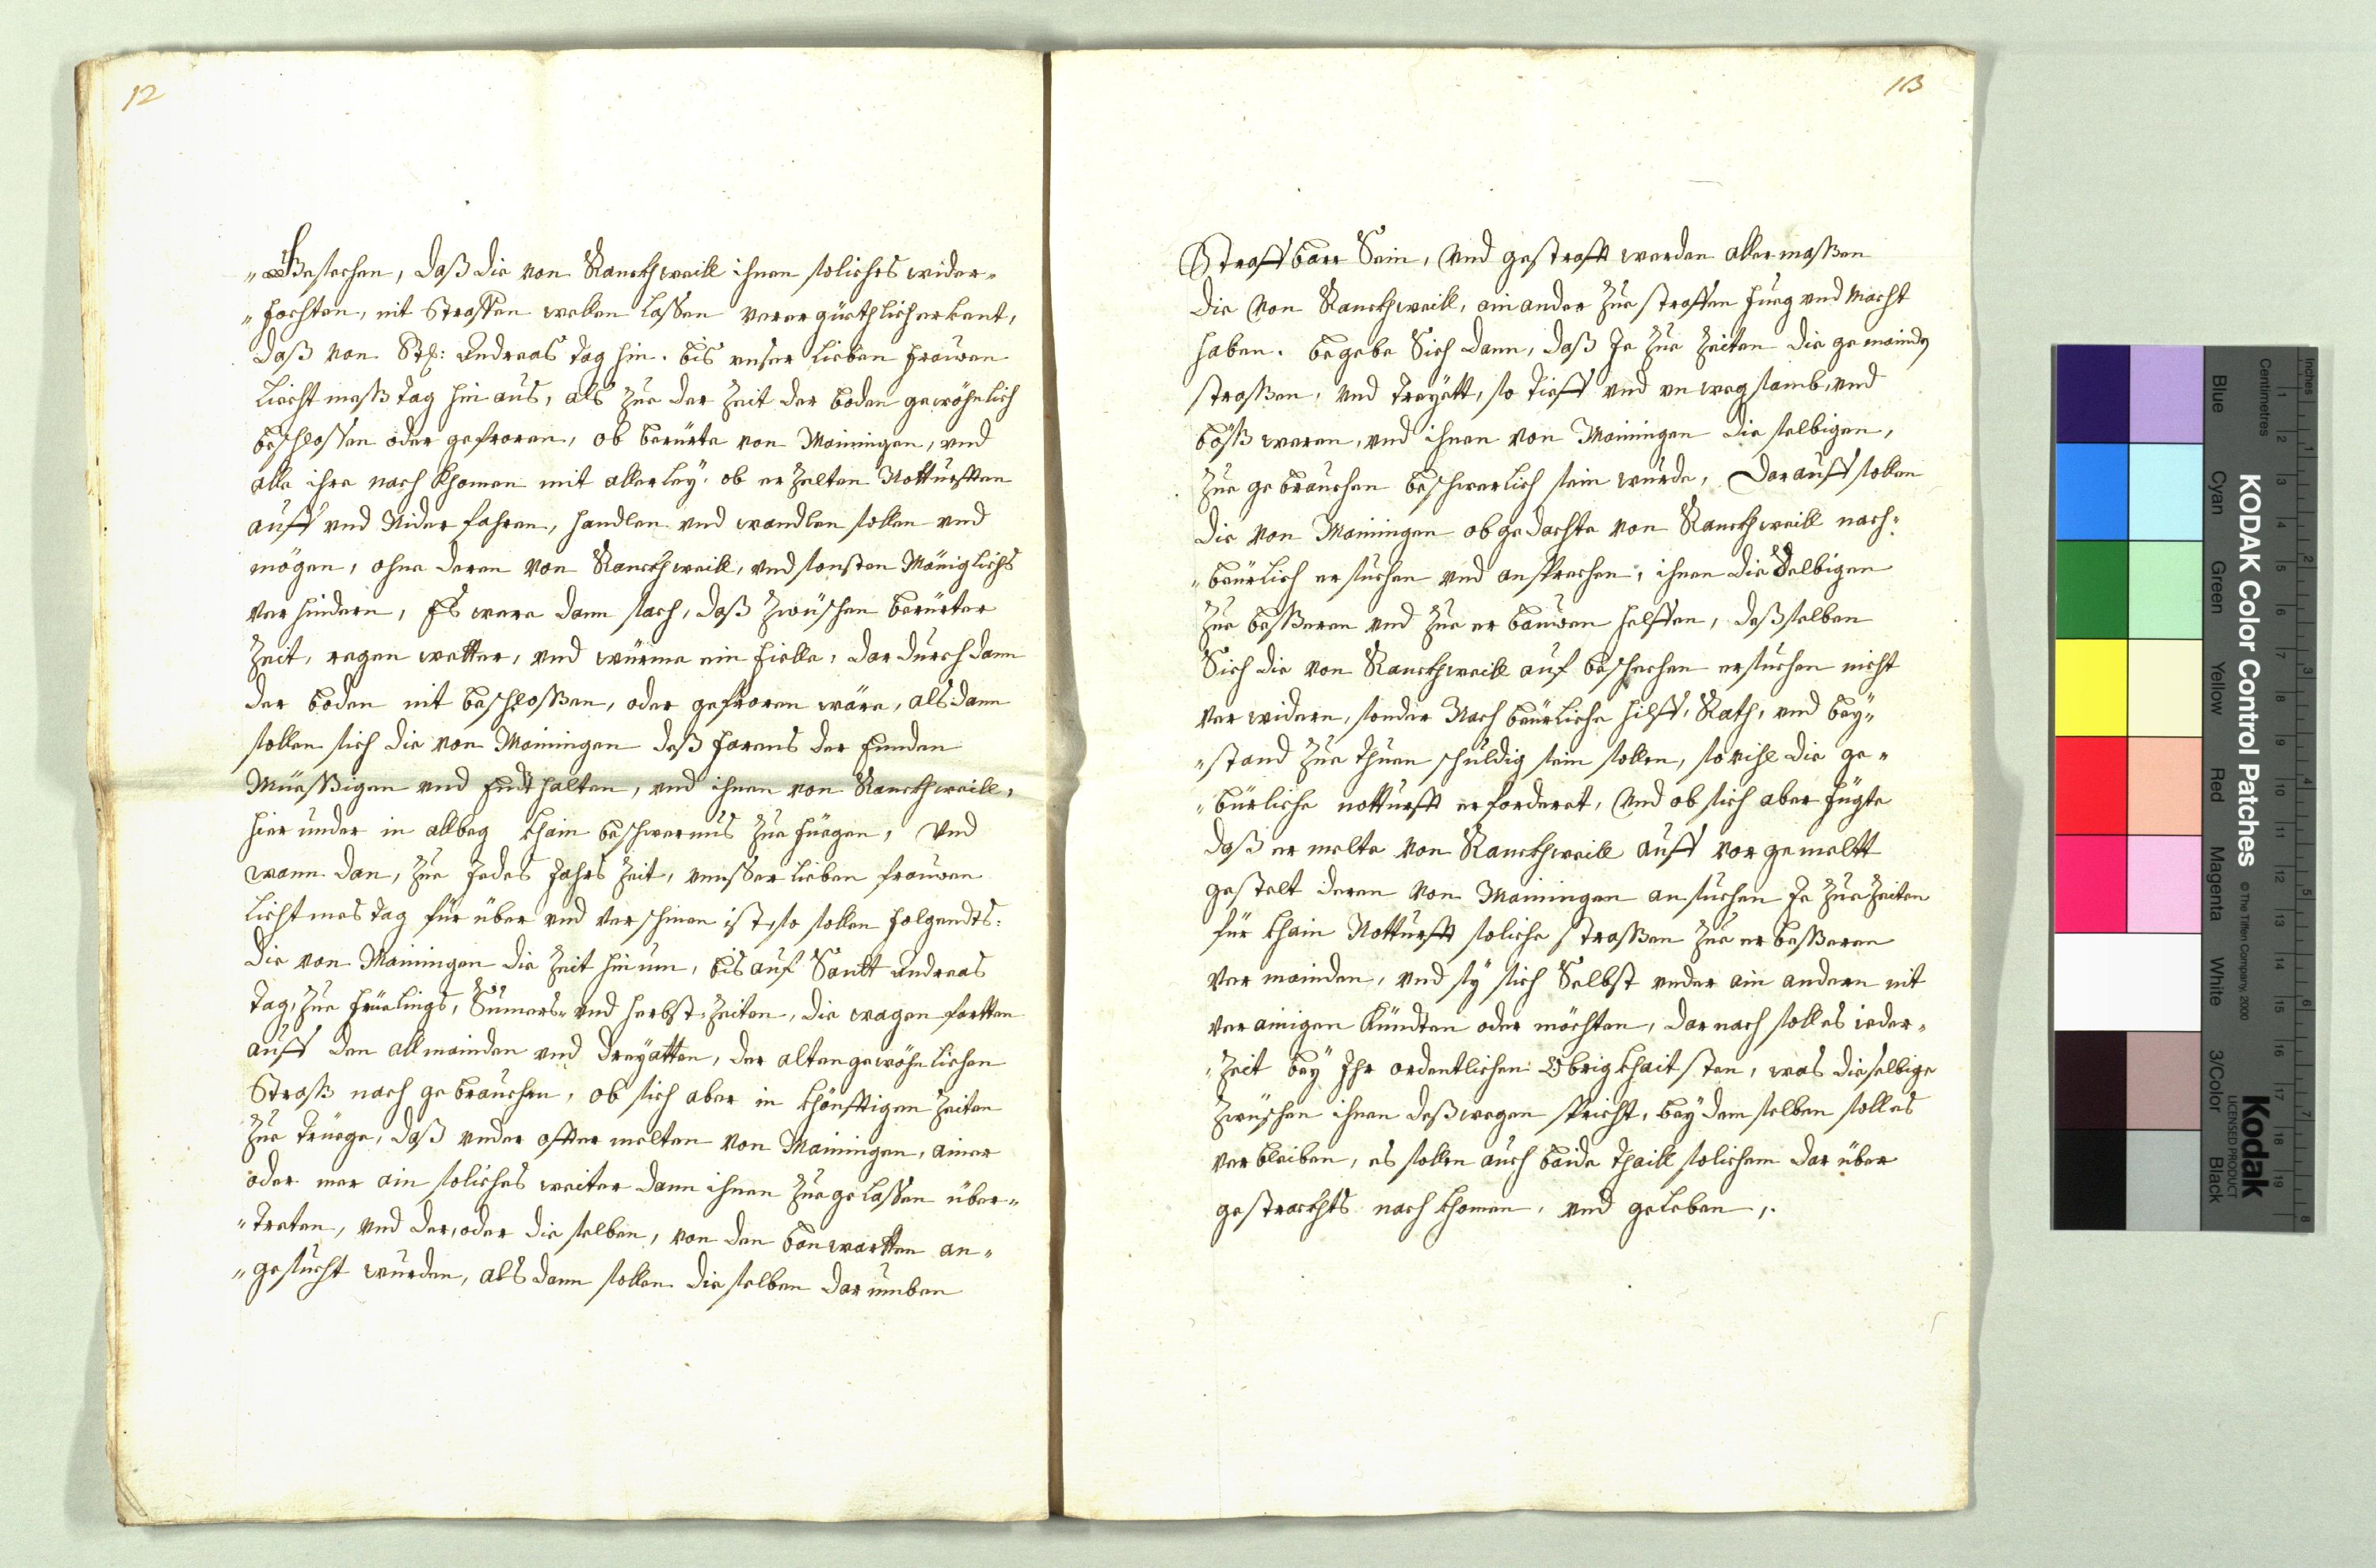 12
„Bestechen, daß die von Ranckhweill ihnen soliches wider„
„fochten, nit Straffen wellen Lassen verer güethlich erkent,
daß von St: Andreas tag hin. bis vnser Lieben frauwen
Liecht meß tag hin aus, als Zue der Zeit der boden gewöhnlich
beschlossen oder gefroren, ob berürte von Mainingen, vnd
alle ihre nach khomen mit allerley. ob er Zelten Notturfften
auff vnd Nider fahren, handlen vnd wandlen sollen vnd
mögen, ohne deren von Ranckhweill, vnd sonsten Mäniglichs
ver hindern, Es were dann sach, daß Zwüschen berürter
Zeit, regen wetter, vnd würme ein fielle, dar durch dann
der boden nit beschloßen, oder gefroren wäre, als dann
sollen sich die von Mainingen deß farens der Enden
Müeßigen vnd Endthalten, vnd ihnen von Ranckhweill,
hier under in allweg khain beschwernus Zue füegen, Vnd
wann dan, Zue Jedes Jahrs Zeit, vnnsser Lieben frauwen
Lichtmes tag für über vnd verschinen ist, so sollen folgendts:
die von Mainingen die Zeit hinum, bis auf Sanct Andreas
tag, Zue früelings, Sumers„ vnd herbst Zeiten, die wagen fartten
auff den allmainden vnd dreyatten, der alten gewöhnlichen
Straß nach gebrauchen, ob sich aber in khönfftigen Zeiten
Zue trüege, daß vnder offter melten von Mainingen, ainer
oder mer ain soliches weiter dann ihnen Zuegelassen über„
„tretten, vnd der, oder die selben, von den banwartten an„
„gesucht wurden, als dann sollen die selben dar umben
13
Straffbarr Sein, Vnd gestrafft werden aller maßen
die Von Ranckhweill, ain ander Zue straffen fueg vnd Macht
haben. begebe Sich dann, daß Je Zue Zeiten die gemainden
straßen, vnd treyätt, so tieff vnd vn wegsamb, vnd
böß weren, vnd ihnen von Mainingen die selbigen,
Zue gebrauchen beschwerlich sein wurde, Darauff sollen
die von Mainingen obgedachte von Ranckhweill nach„
„beürlich ersuchen vnd ansprechen, ihnen die Selbigen
Zue beßeren vnd Zue er bauwen helffen, deßselben
Sich die von Ranckhweill auf beschechen ersuchen nicht
ver widern, sonder Nach beürliche hilff, Rath, vnd bey„
„stand Zue thuen schuldig sein sollen, so vihl die ge„
„bürliche notturfft erforderet, Vnd ob sich aber fügte
daß er melte von Ranckhweill auff vor gemeltt
gestelt deren von Mainingen ansuchen Je Zue Zeiten
für khain Notturfft soliche straßen Zue er beßeren
Ver mainden, vnd sy sich Selbst vnder ain andern nit
verainigen kündten oder möchten, dar nach soll es ieder„
„Zeit bey Ihr ordentlichen Obrigkhait sten, was dieselbige
Zwüschen ihnen deßwegen spricht, bey dem selben soll es
verbleiben, es sollen auch baide thaill solichem dar über
gestrackhts nach khomen, vnd geleben,.
KODAK Color Control Patches
© The Tiffen Company, 2000
Kodak
LICENSED PRODUCT
Inches
Centimetres
Blue
Cyan
Green
Yellow
Red
Magenta
White
3/Color
Black
1 2 3 4 5 6 7 8
1 2 3 4 5 6 7 8 9 10 11 12 13 14 15 16 17 18 19